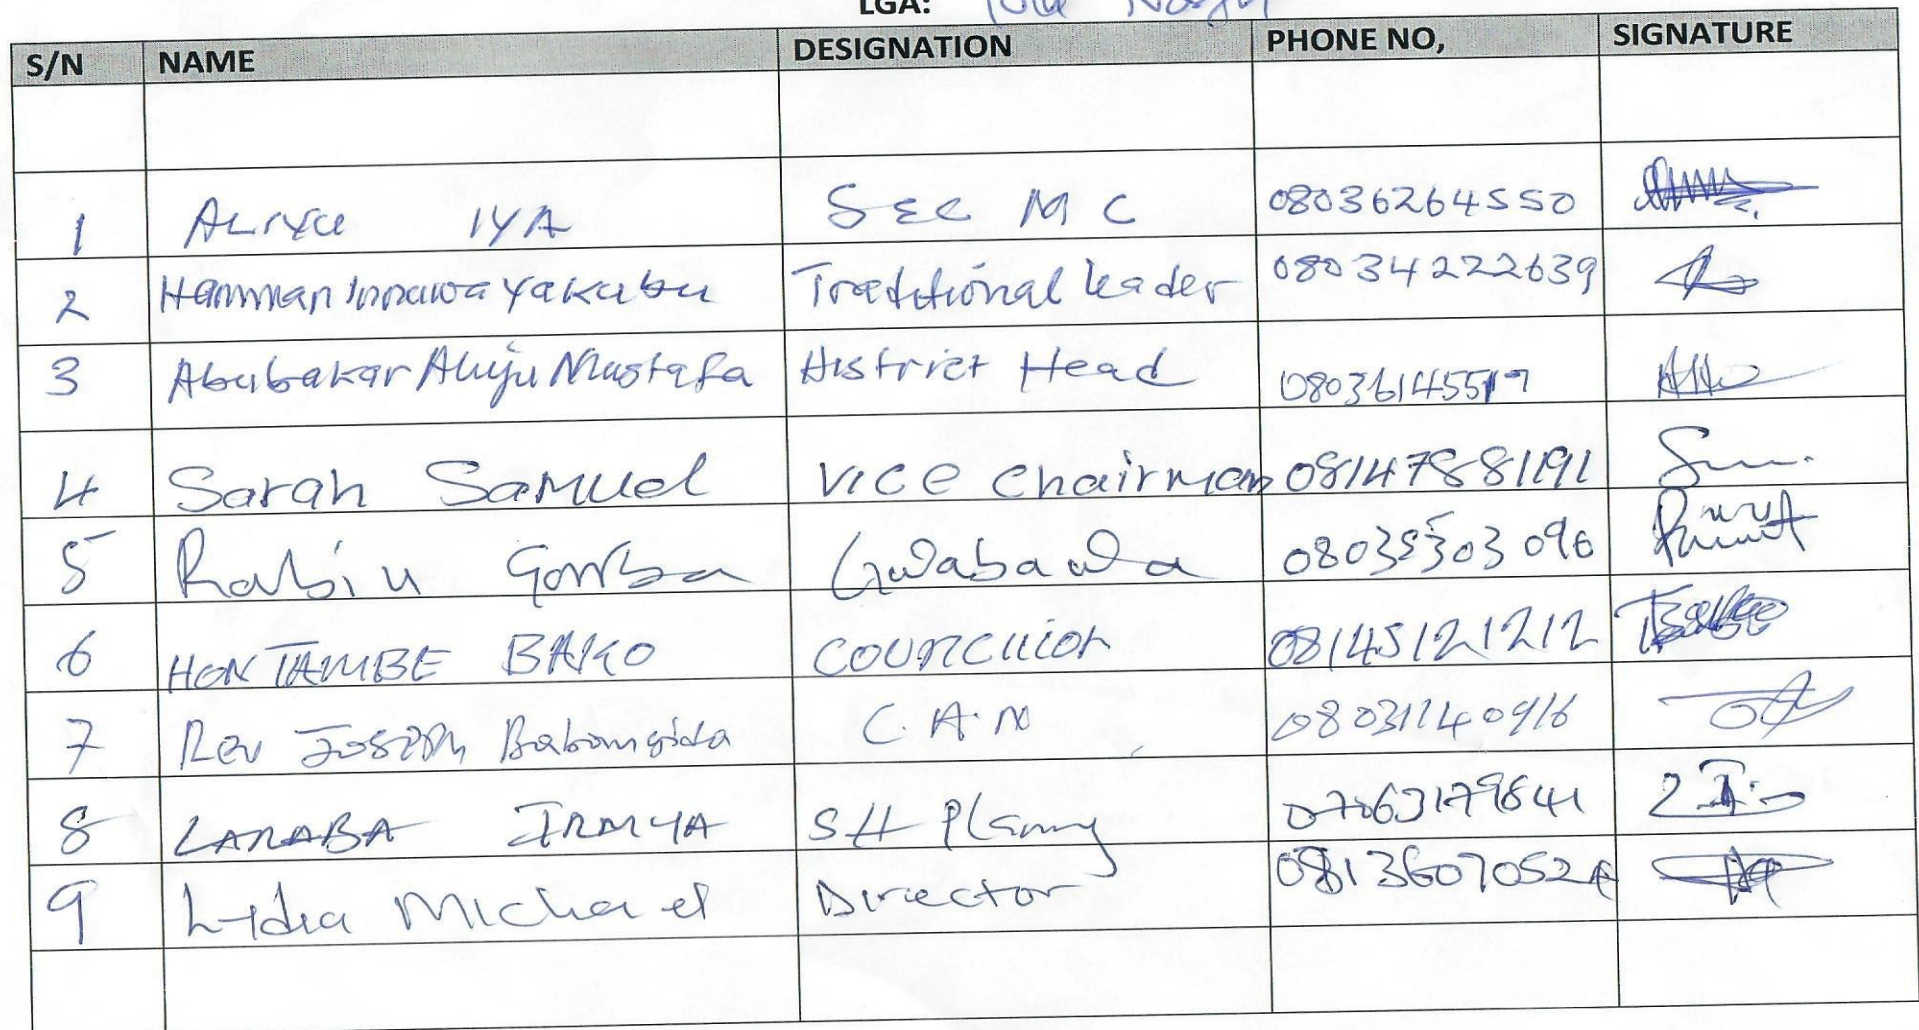 LGA: Yola North
S/N NAME DESIGNATION PHONE NO, SIGNATURE
1 ALIYU IYA SEC M C 08036264550
2 Hamman Innawa Yakubu Traditional leader 08034222639
3 Abubakar Aliyu Mustafa District Head 08036145519
4 Sarah Samuel Vice Chairman 08147881191
5 Rabiu Gomba Gwabawa 08035303096
6 HON TAMBE BAKO COUNCILLOR 08145121212
7 Rev JOSEPH Babangida C.A.N 08031140916
8 LARABA IRMIYA S/H Planng 07063179841
9 Lydia Michael Director 0813607052